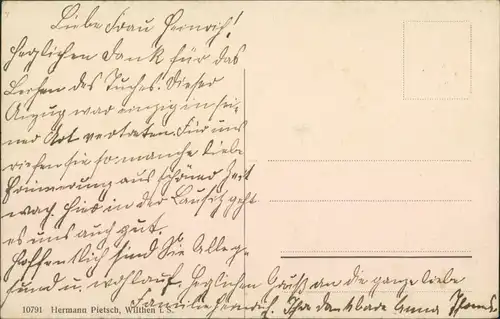 Liebe Frau Heinrich!
Herzlichen Dank für das
Leihen des Tuches. Dieser
Anzug war einzig in sei-
ner Art vertreten. Für uns
riefen Sie so manche liebe
Erinnerung aus schöner Zeit
wach. Hier in der Lausitz geht
es uns auch gut.
Hoffentlich sind Sie alle ge-
sund u. wohlauf. Herzlichen Gruß an die ganze liebe
Familie Heinrich. Ihre dankbare Emma
10791 Hermann Pietsch, Wilthen i. S.